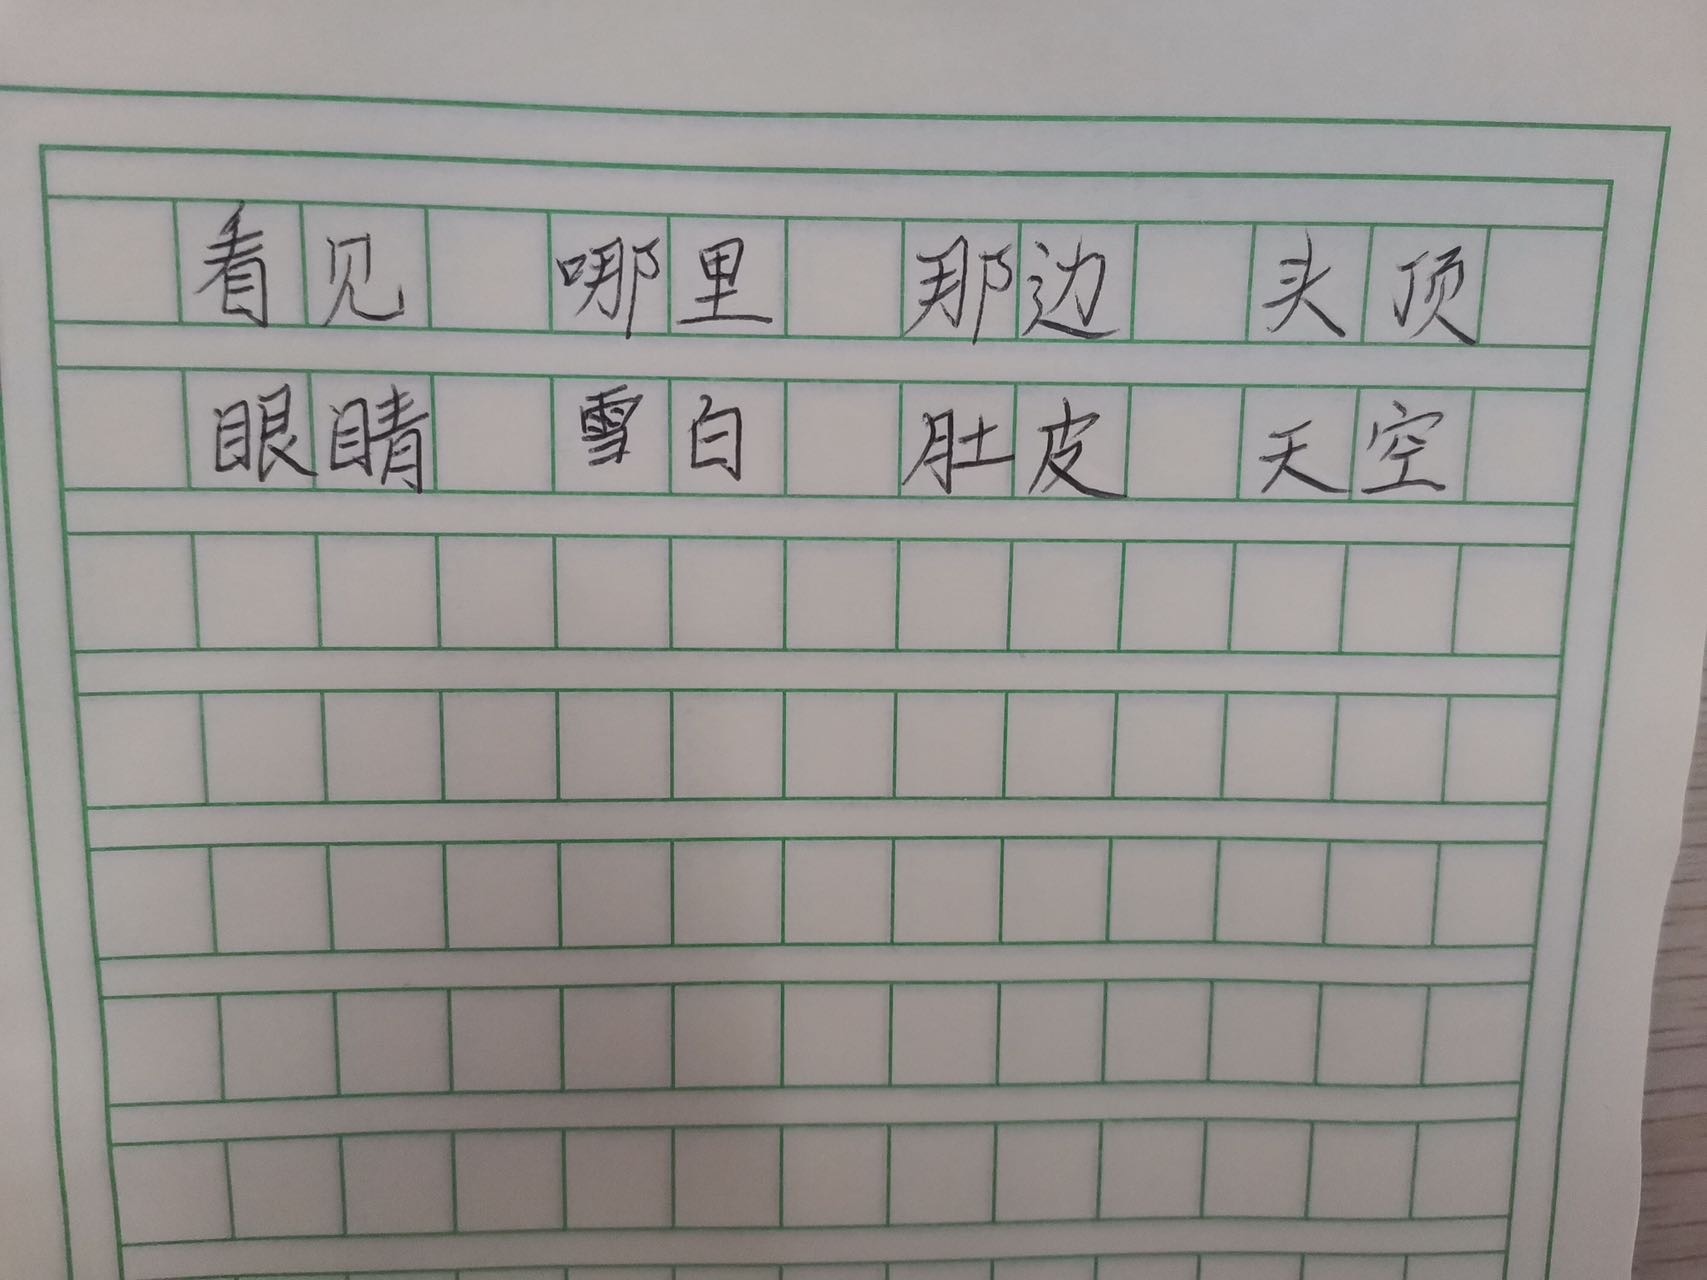 看见 哪里 那边 头顶
眼睛 雪白 肚皮 天空